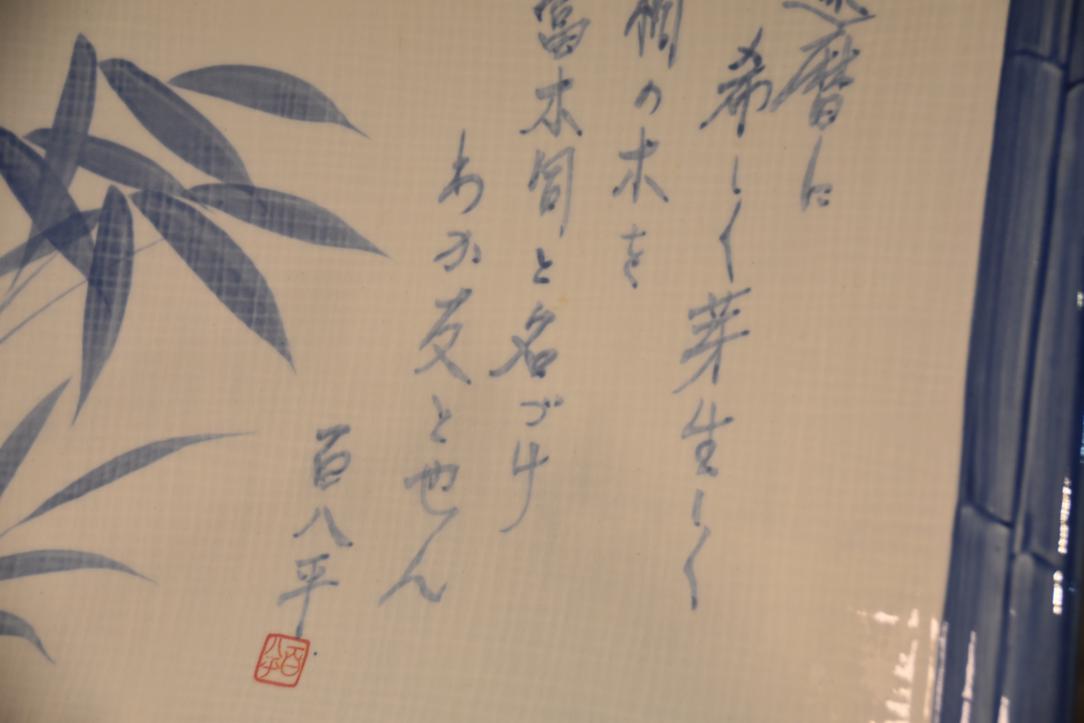 還暦に
希しく芽生しく
桐の木を
富木旬と名づけ
わが友と也ん
百八平